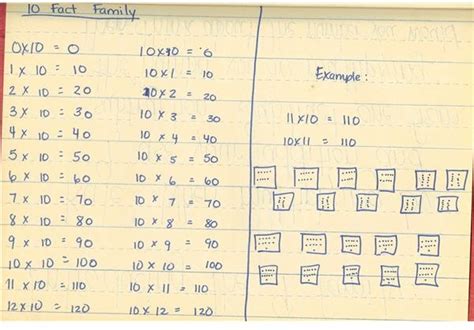 10 Fact Family
0x10 = 0
1 x 10 = 10
2 x 10 = 20
3 x 10 = 30
4 x 10 = 40
5 x 10 = 50
6 x 10 = 60
7 x 10 = 70
8 x 10 = 80
9 x 10 = 90
10 x 10 = 100
11 x 10 = 110
12 x 10 = 120
10x10 = 0
10x1 = 10
10x2 = 20
10 x 3 = 30
10 x 4 = 40
10 x 5 = 50
10 x 6 = 60
10 x 7 = 70
10 x 8 = 80
10 x 9 = 90
10 x 10 = 100
10 x 11 = 110
10 x 12 = 120
Example:
11x10 = 110
10x11 = 110